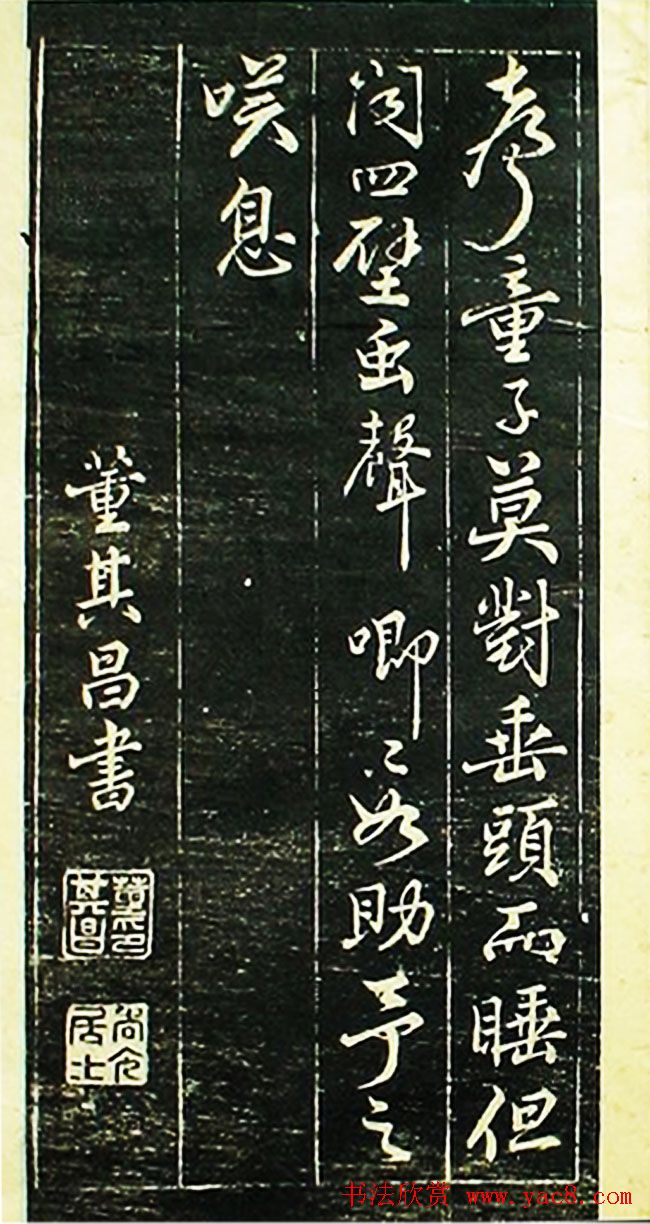 声童子莫對垂頭而睡但
聞四壁虫聲唧〻如助予之
嘆息
董其昌書
董其昌印
書法欣赏 www.yac8.com